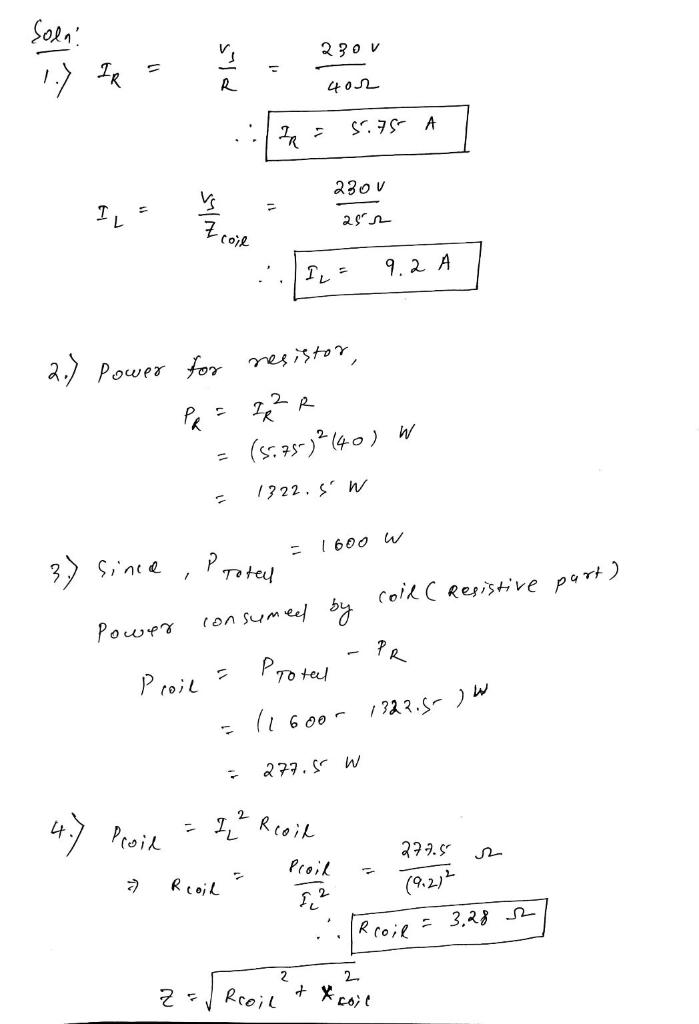 Soln:
1.) I_R = V_s/R = 230 V/40Ω
∴ I_R = 5.75 A
I_L = V_s/Z_coil = 230 V/25 Ω
∴ I_L = 9.2 A
2.) Power for resistor,
P_R = I_R² R
= (5.75)² (40) W
= 1322.5 W
3.) Since, P_Total = 1600 W
Power consumed by coil (Resistive part)
P_coil = P_Total - P_R
= (1600 - 1322.5) W
= 277.5 W
4.) P_coil = I_L² R_coil
⇒ R_coil = P_coil/I_L² = 277.5/(9.2)² Ω
∴ R_coil = 3.28 Ω
Z = √(R_coil² + X_coil²)